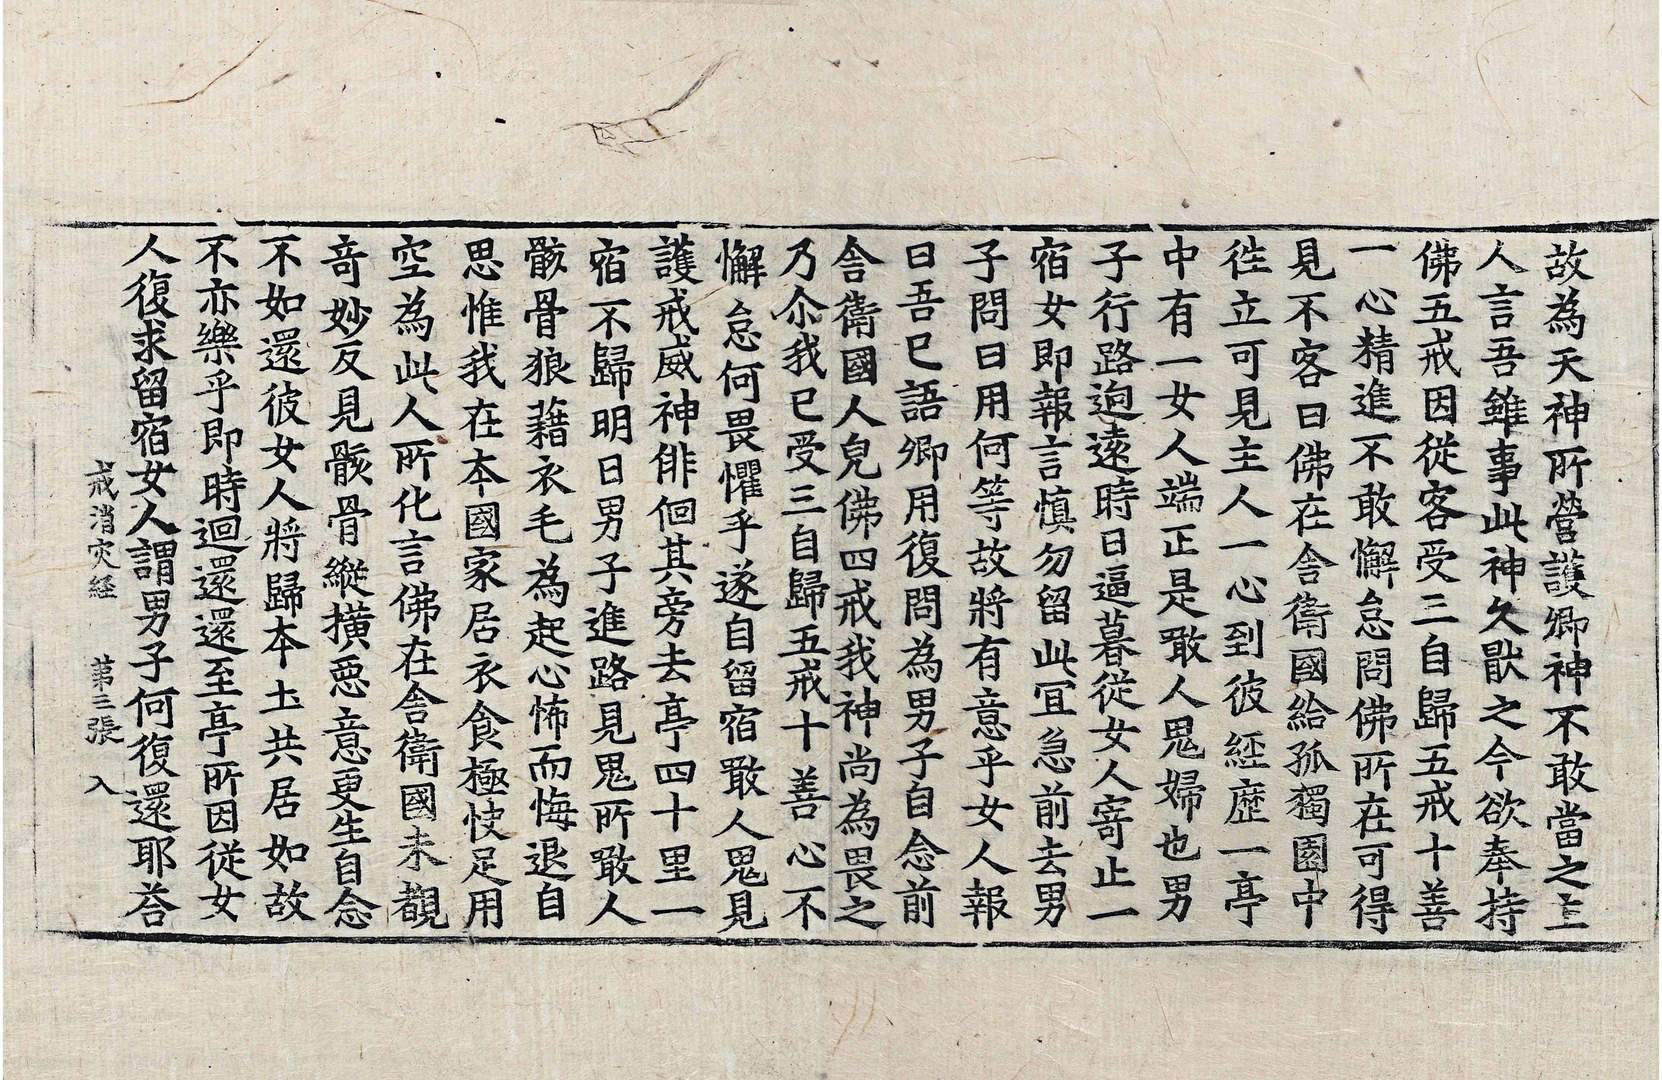 故為天神所營護卿神不敢當之主
人言吾雖事此神久猒之今欲奉持
佛五戒因從客受三自歸五戒十善
一心精進不敢懈怠問佛所在可得
見不客曰佛在舎衛國給孤獨園中
徃立可見主人一心到彼經歷一亭
中有一女人端正是噉人鬼婦也男
子行路逈遠時日逼暮從女人寄止一
宿女即報言慎勿留此宜急前去男
子問曰用何等故將有意乎女人報
曰吾已語卿用復問為男子自念前
舎衛國人皃佛四戒我神尚為畏之
乃尒我已受三自歸五戒十善心不
懈怠何畏懼乎遂自留宿噉人鬼見
護戒威神俳佪其旁去亭四十里一
宿不歸明日男子進路見鬼所噉人
骸骨狼藉衣毛為起心怖而悔退自
思惟我在本國家居衣食極快足用
空為此人所化言佛在舎衛國未覩
竒妙反見骸骨縱撗惡意更生自念
不如還彼女人將歸本土共居如故
不亦樂乎即時迴還還至亭所因從女
人復求留宿女人謂男子何復還耶荅
戒消灾経 第三張 入